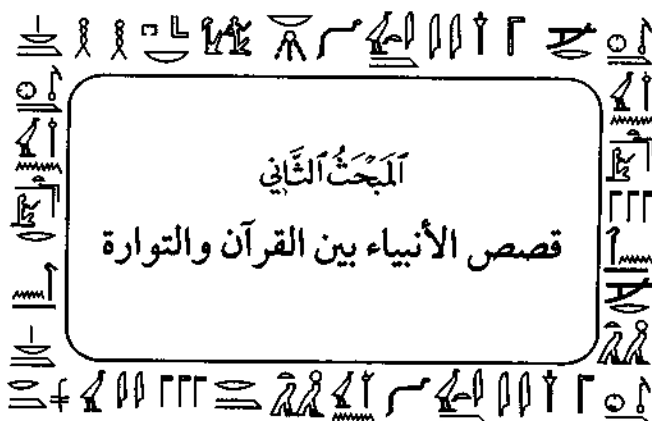 ٱلمَبْحَثُ ٱلثَّاني
قصص الأنبياء بين القرآن والتوارة